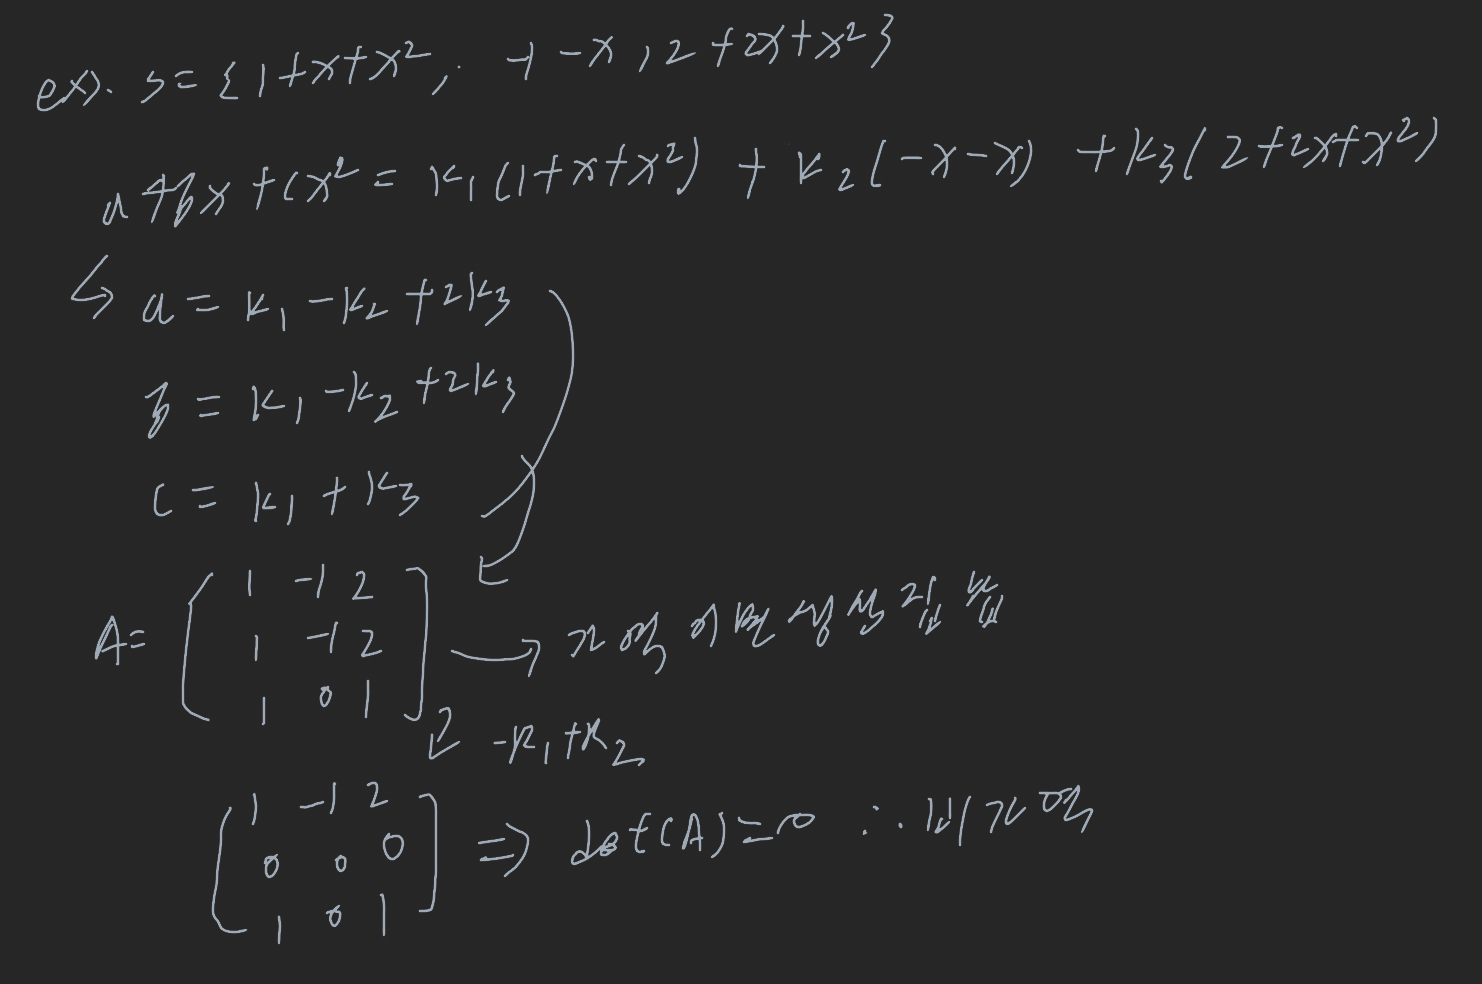 ex). S = {1+x+x², -1-x, 2+2x+x²}
a+bx+cx² = k₁(1+x+x²) + k₂(-x-x) + k₃(2+2x+x²)
↳ a = k₁ - k₂ + 2k₃
b = k₁ - k₂ + 2k₃
c = k₁ + k₃
A = [1 -1 2
1 -1 2 → 가역이면 생성집합
1 0 1]
↓ -R₁+R₂
[1 -1 2
0 0 0 ⇒ det(A)=0 ∴ 비가역
1 0 1]